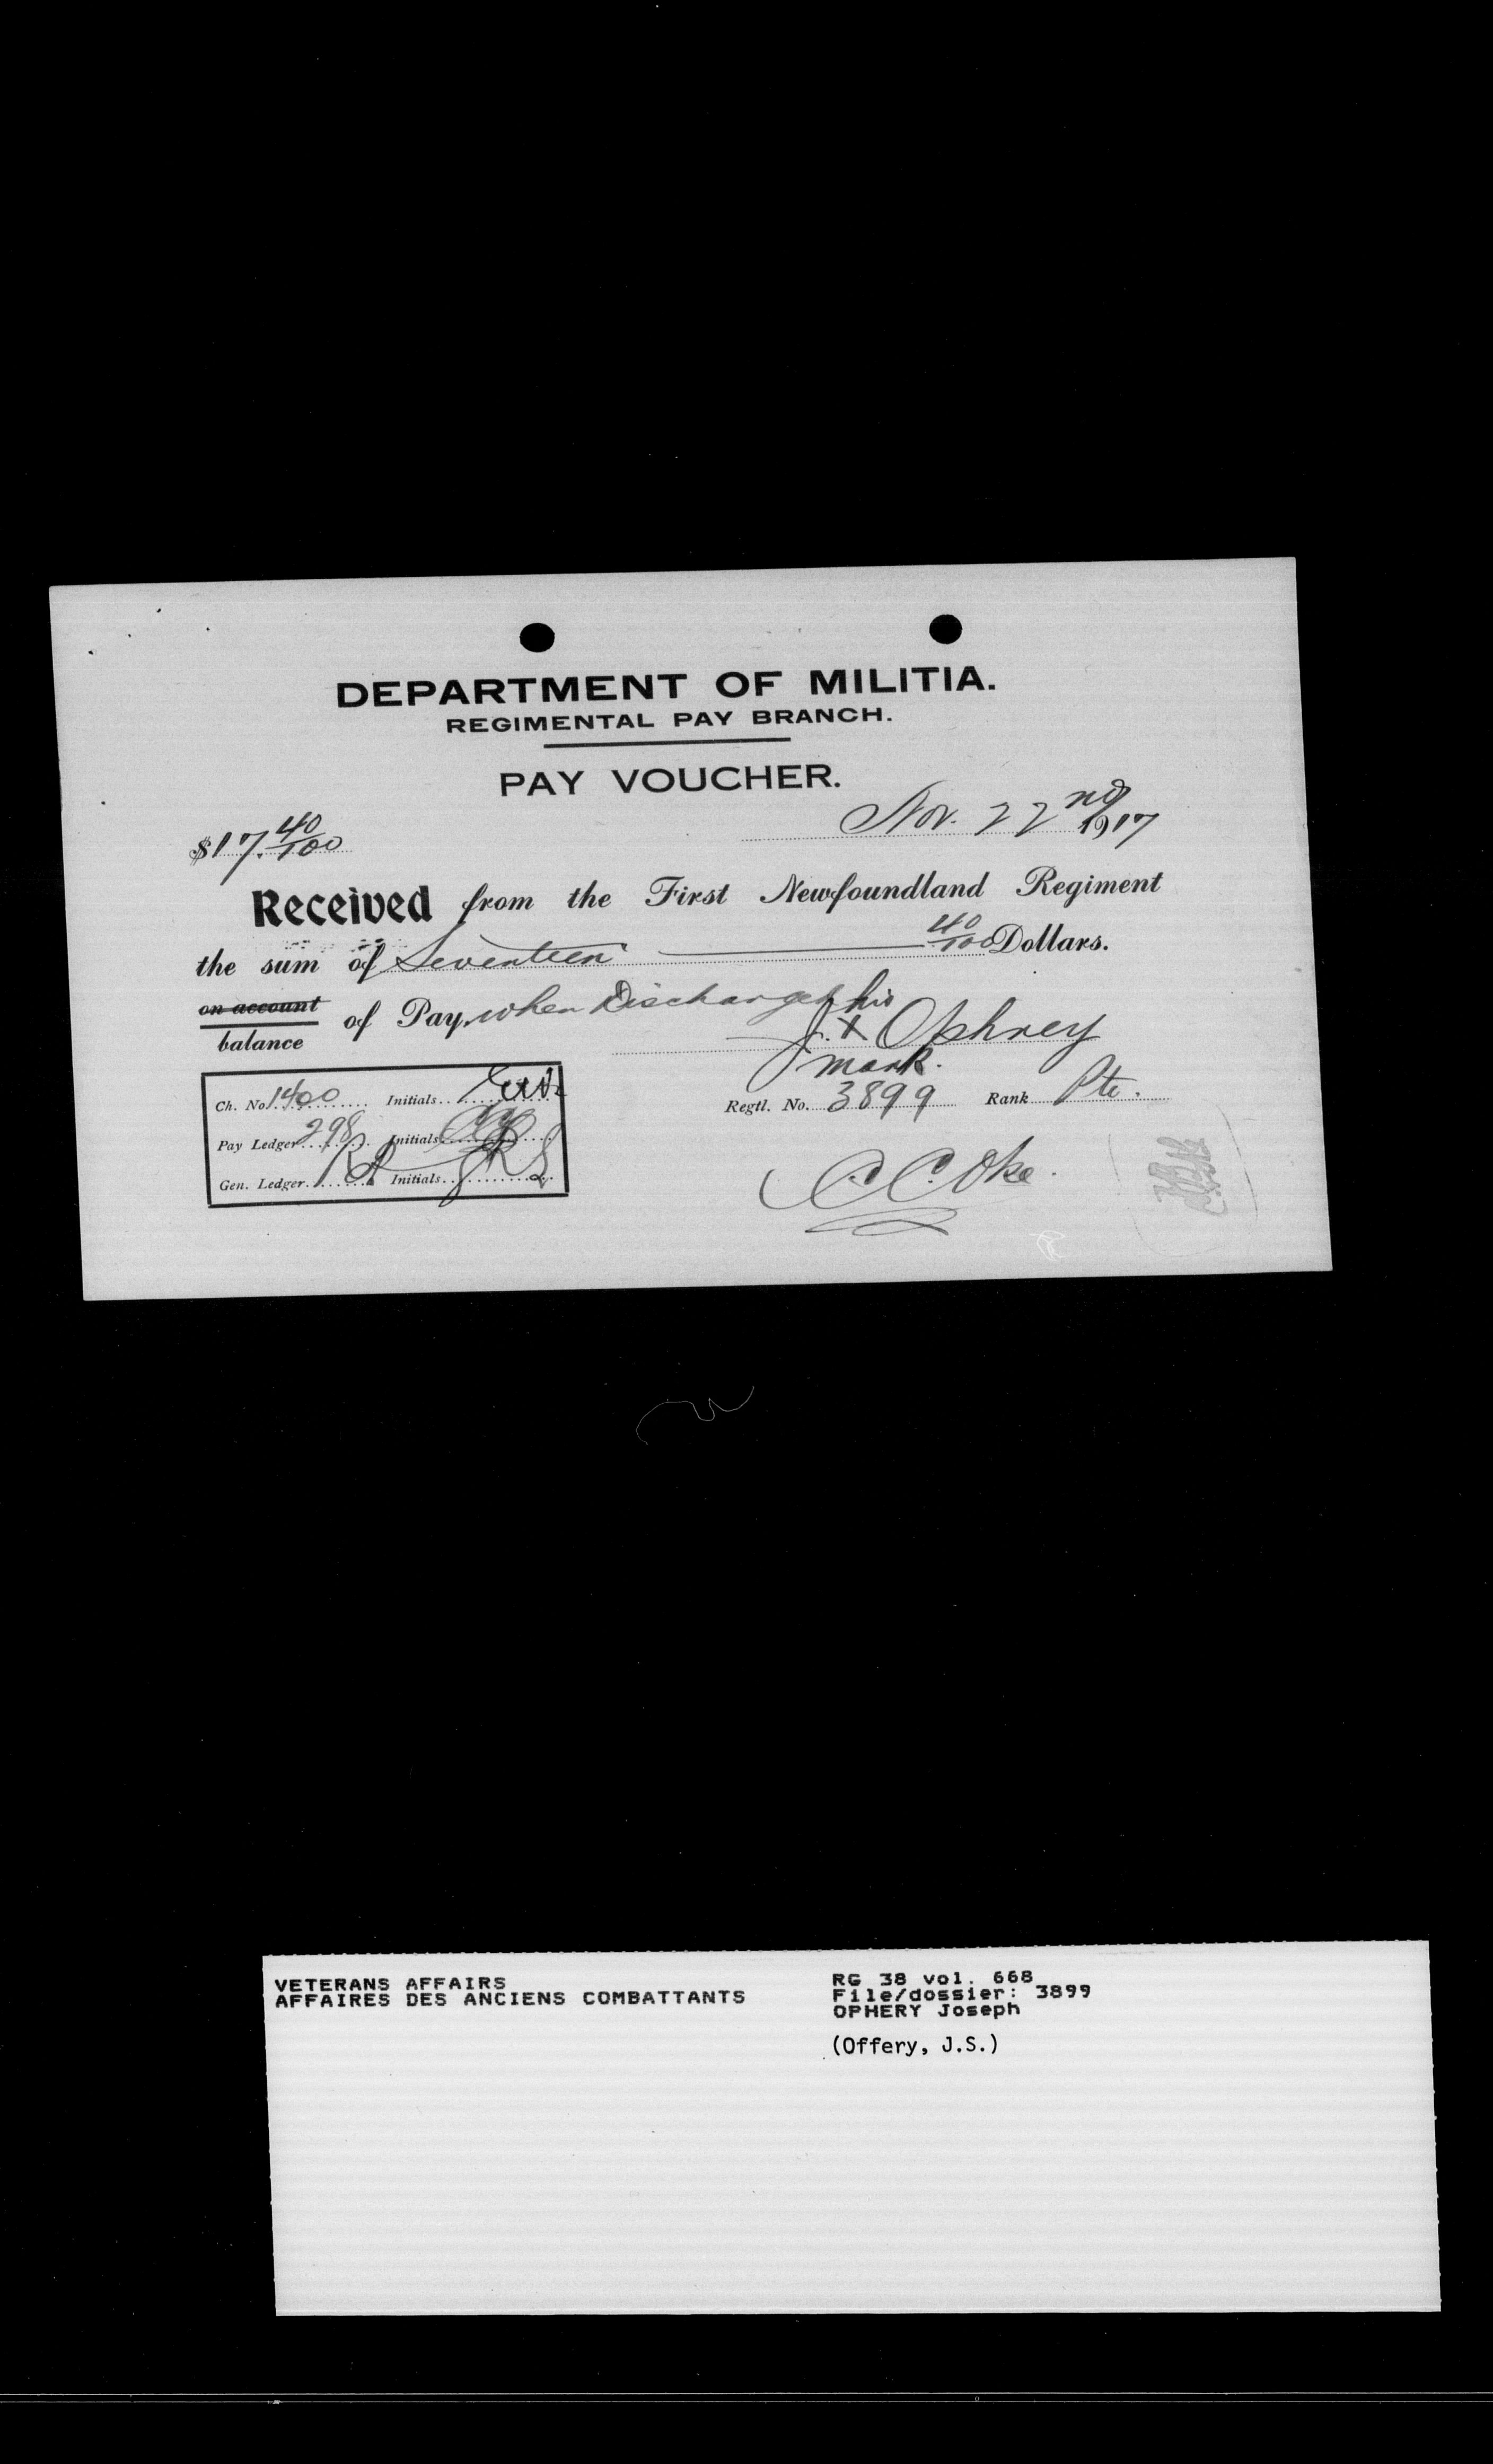 DEPARTMENT OF MILITIA.
REGIMENTAL PAY BRANCH.
PAY VOUCHER.
Nov. 22nd 1917
$17.40/100
Received from the First Newfoundland Regiment
the sum of Seventeen 40/100 Dollars.
on account
balance
of Pay. when Discharged
his
J. X Ophrey
mark.
Regtl. No. 3899 Rank Pte.
Ch. No. 1400 Initials
Pay Ledger 298 Initials
Gen. Ledger Initials
C C Oke.
VETERANS AFFAIRS
AFFAIRES DES ANCIENS COMBATTANTS
RG 38 vol. 668
File/dossier: 3899
OPHERY Joseph
(Offery, J.S.)